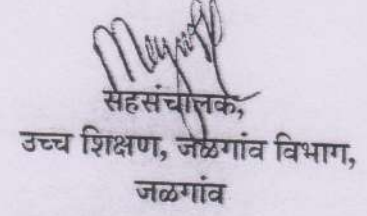 सहसंचालक,
उच्च शिक्षण, जळगांव विभाग,
जळगांव